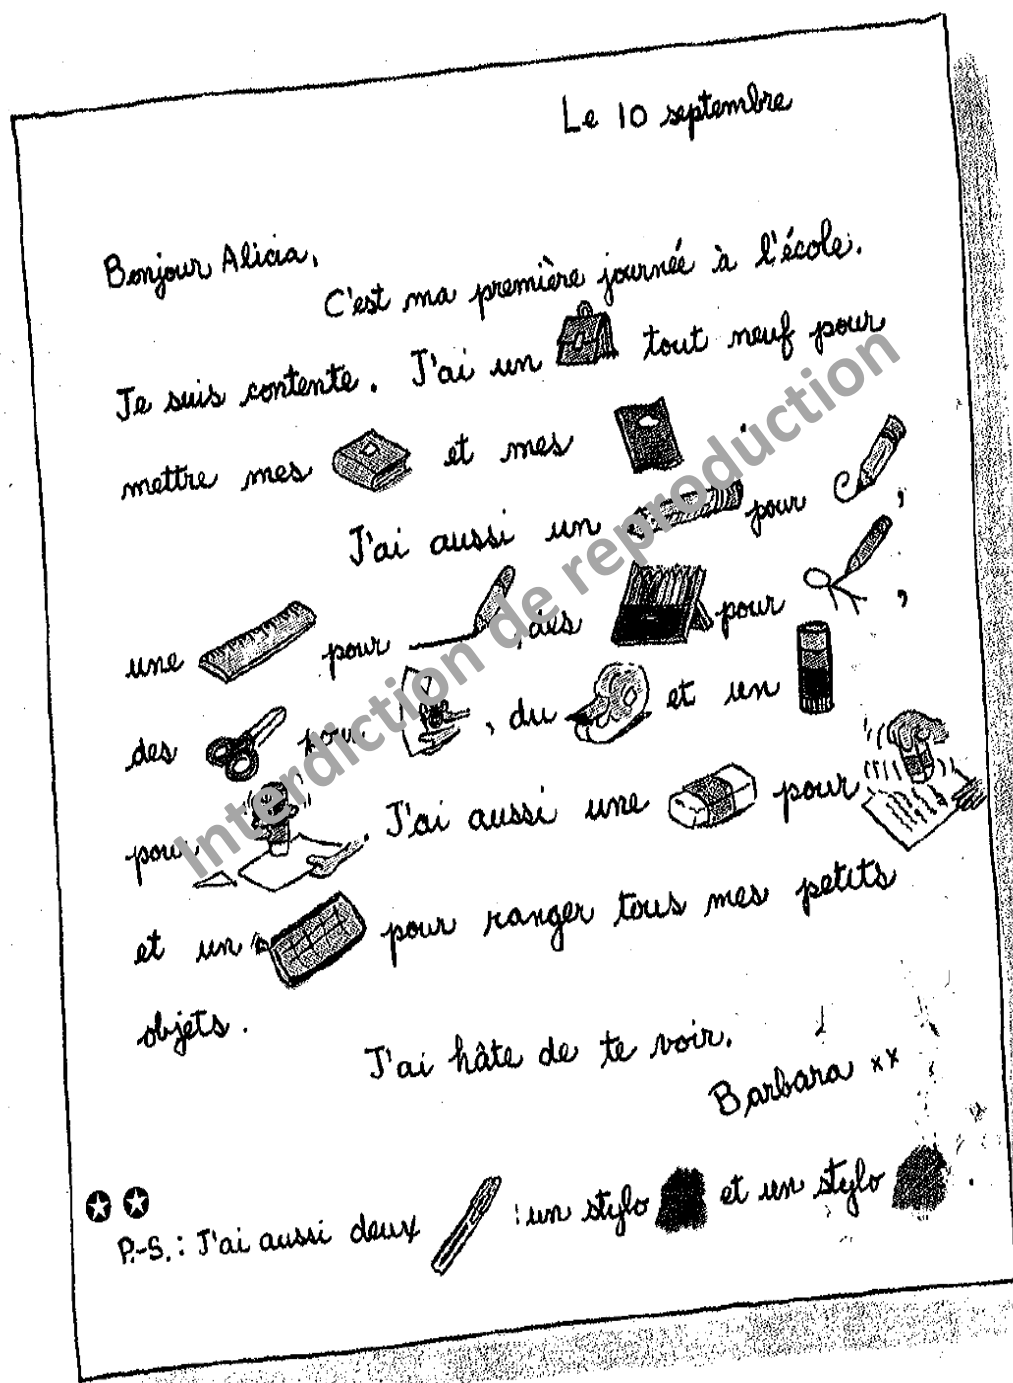 Le 10 septembre
Bonjour Alicia,
C'est ma première journée à l'école.
Je suis contente. J'ai un tout neuf pour
mettre mes et mes .
J'ai aussi un pour ,
une pour , des pour ,
des pour , du et un
pour . J'ai aussi une pour
et un pour ranger tous mes petits
objets.
J'ai hâte de te voir.
Barbara xx
P.-S. : J'ai aussi deux : un stylo et un stylo .
Interdiction de reproduction